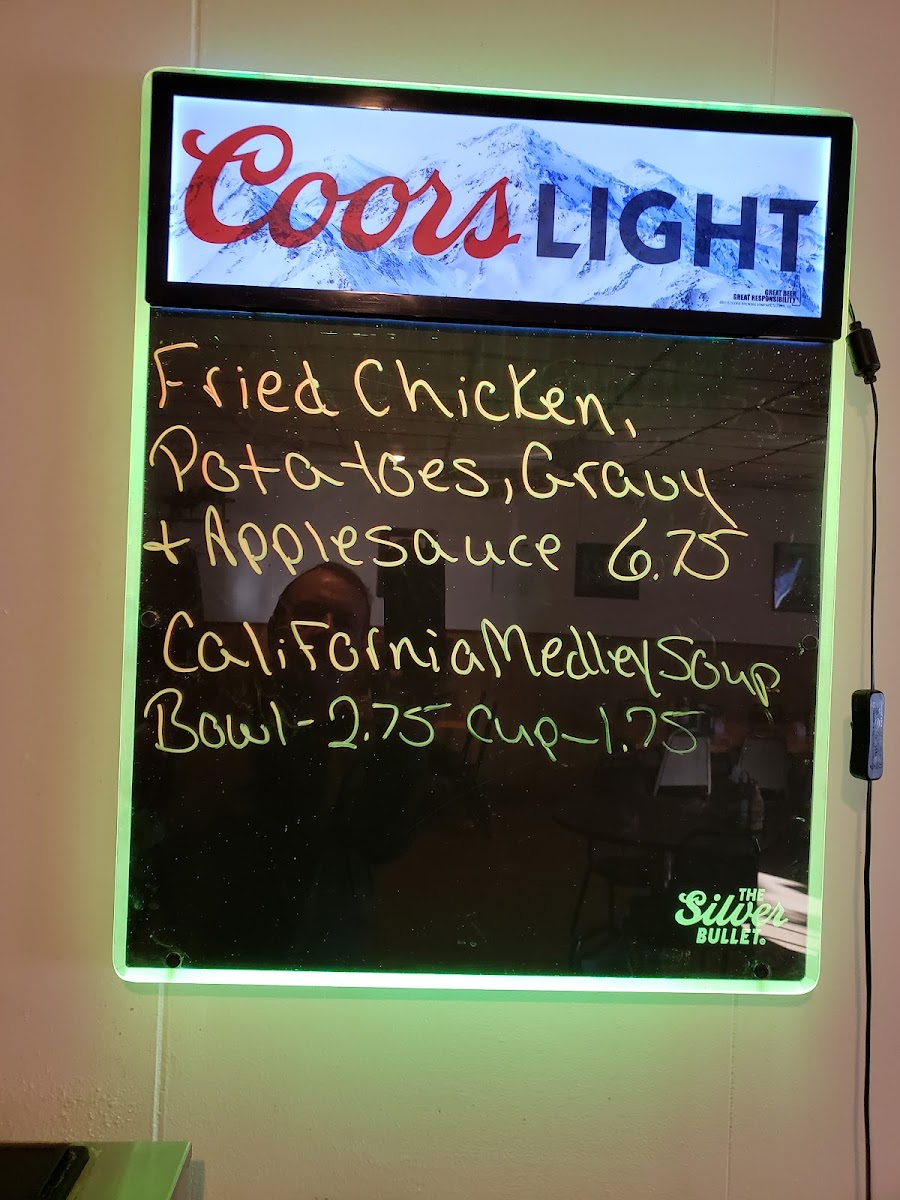 Coors LIGHT
GREAT BEER
GREAT RESPONSIBILITY
Fried Chicken,
Potatoes, Gravy
+ Applesauce 6.75
California Medley Soup
Bowl - 2.75 Cup - 1.75
THE
Silver
BULLET®